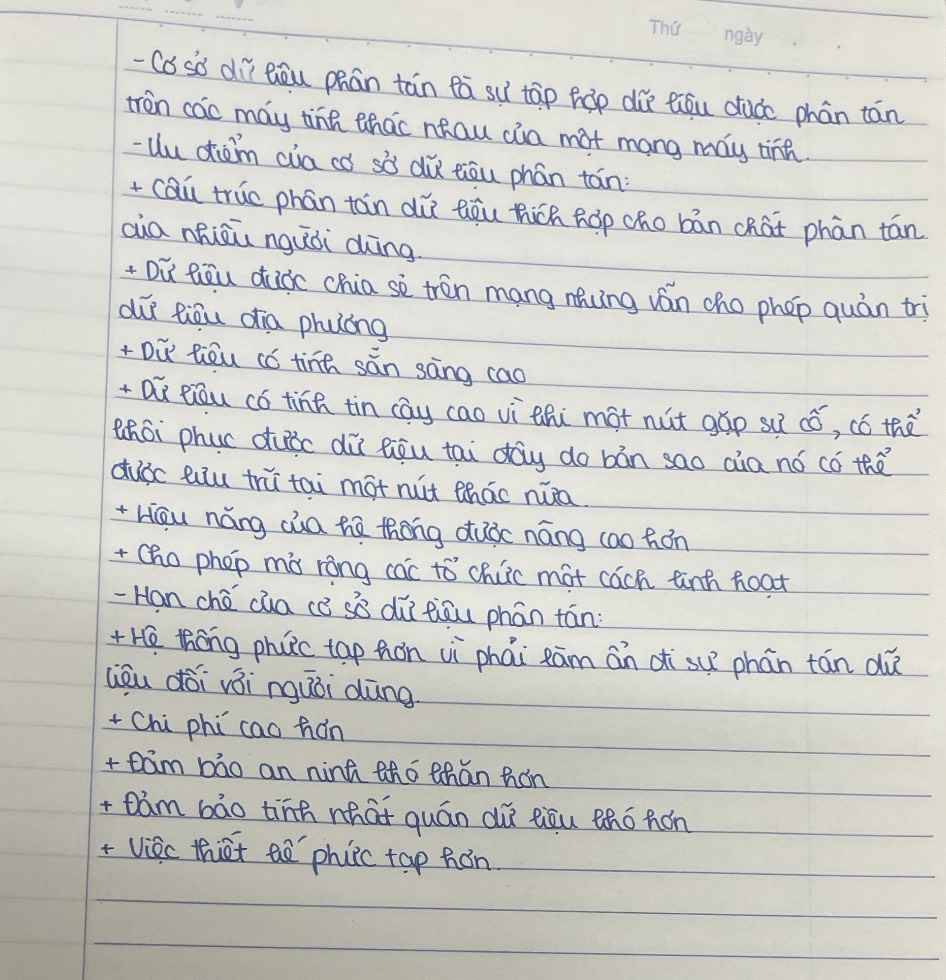 Thứ ngày
- Cơ sở dữ liệu phân tán là sự tập hợp dữ liệu được phân tán
trên các máy tính khác nhau của một mạng máy tính.
- Ưu điểm của cơ sở dữ liệu phân tán:
+ Cấu trúc phân tán dữ liệu thích hợp cho bản chất phân tán
của nhiều người dùng.
+ Dữ liệu được chia sẻ trên mạng nhưng vẫn cho phép quản trị
dữ liệu địa phương
+ Dữ liệu có tính sẵn sàng cao
+ Dữ liệu có tính tin cậy cao vì khi một nút gặp sự cố, có thể
khôi phục được dữ liệu tại đây do bản sao của nó có thể
được lưu trữ tại một nút khác nữa.
+ Hiệu năng của hệ thống được nâng cao hơn
+ Cho phép mở rộng các tổ chức một cách linh hoạt
- Hạn chế của cơ sở dữ liệu phân tán:
+ Hệ thống phức tạp hơn vì phải làm ẩn đi sự phân tán dữ
liệu đối với người dùng.
+ Chi phí cao hơn
+ Đảm bảo an ninh khó khăn hơn
+ Đảm bảo tính nhất quán dữ liệu khó hơn
+ Việc thiết kế phức tạp hơn.